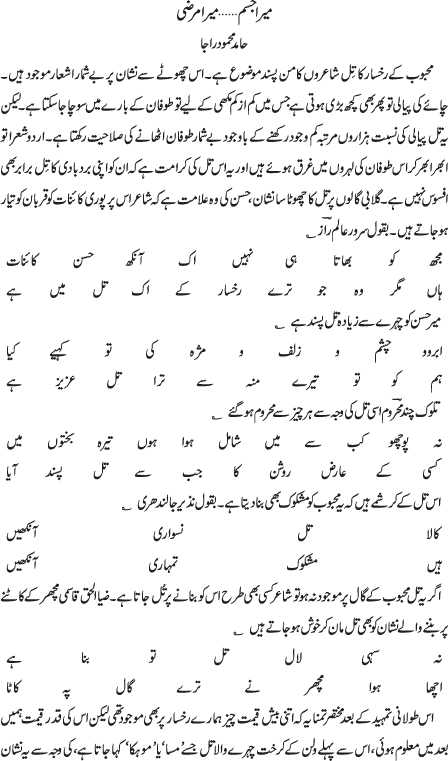 میرا جسم......میرا مرضی
حامد محمود راجا
محبوب کے رخسار کا تِل شاعروں کا من پسند موضوع ہے۔ اس چھوٹے سے نشان پر بے شمار اشعار موجود ہیں۔
چائے کی پیالی تو پھر بھی کچھ بڑی ہوتی ہے جس میں کم از کم مکھی کے لیے تو طوفان کے بارے میں سوچا جا سکتا ہے۔ لیکن
یہ تل پیالی کی نسبت ہزاروں مرتبہ کم وجود رکھنے کے باوجود بے شمار طوفان اٹھانے کی صلاحیت رکھتا ہے۔ اردو شعرا تو
ابھر ابھر کر اس طوفان کی لہروں میں غرق ہوئے ہیں اور یہ اس تل کی کرامت ہے کہ ان کو اپنی بردبادی کا تل برابر بھی
افسوس نہیں ہے۔ گلابی گالوں پر تل کا چھوٹا سا نشان، حسن کی وہ علامت ہے کہ شاعر اس پر پوری کائنات کو قربان کو تیار
ہو جاتے ہیں۔ بقول سرور عالم رازؔ
مجھ کو بھاتا ہی نہیں اک آنکھ حسن کائنات
ہاں مگر وہ جو ترے رخسار کے اک تل میں ہے
میر حسن کو چہرے سے زیادہ تل پسند ہے
ابروو چشم و زلف و مژہ کی تو کہیے کیا
ہم کو تو تیرے منہ سے ترا تل عزیز ہے
تلوک چند محرومؔ اسی تل کی وجہ سے ہر چیز سے محروم ہو گئے
نہ پوچھو کب سے میں شامل ہوا ہوں تیرہ بختوں میں
کسی کے عارض روشن کا جب سے تل پسند آیا
اس تل کے کرشمے ہیں کہ یہ محبوب کو مشکوک بھی بنا دیتا ہے۔ بقول نذیر جالندھری
کالا تل نسواری آنکھیں
ہیں مشکوک تمہاری آنکھیں
اگر یہ تل محبوب کے گال پر موجود نہ ہو تو شاعر کسی بھی طرح اس کو بنانے پر تُل جاتا ہے۔ ضیا الحق قاسمی مچھر کے کاٹنے
پر بننے والے نشان کو بھی تل مان کر خوش ہو جاتے ہیں
نہ سہی لال تل تو بنا ہے
اچھا ہوا مچھر نے ترے گال پہ کاٹا
اس طولانی تمہید کے بعد مختصر تمنا یہ کہ اتنی بیش قیمت چیز ہمارے رخسار پر بھی موجود تھی لیکن اس کی قدر قیمت ہمیں
بعد میں معلوم ہوئی، اس سے پہلے ولن کے کرخت چہرے والا تل جسے 'مسا' یا 'موہکا' کہا جاتا ہے، کی وجہ سے یہ نشان